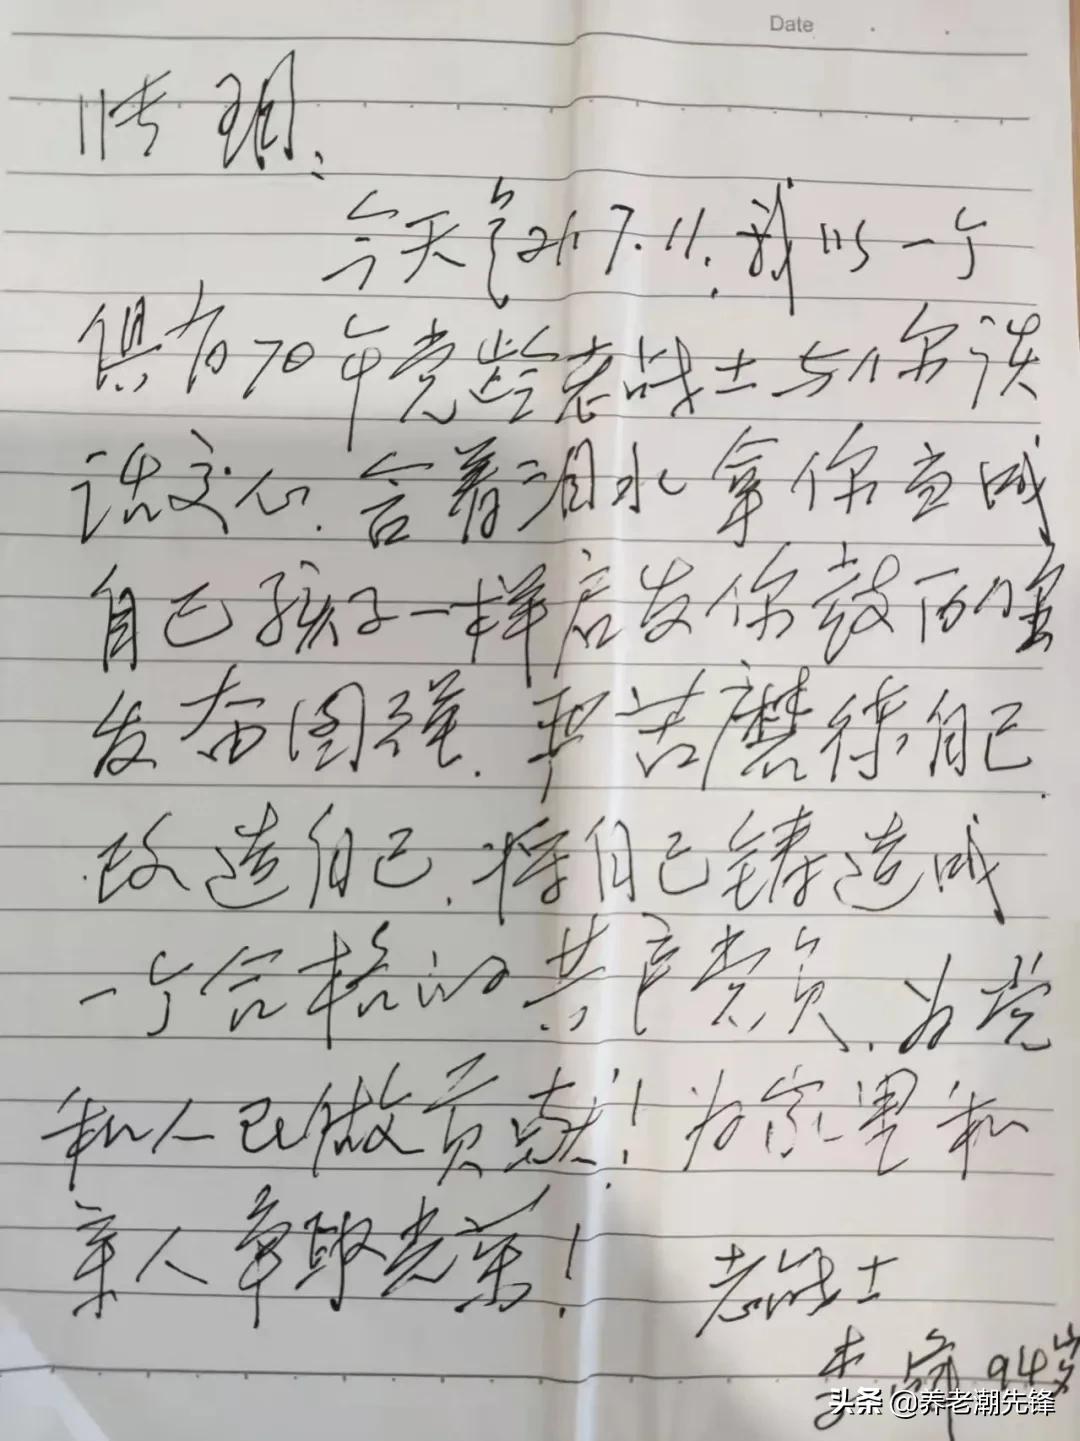 Date
今天是21.7.11.我以一个
俱有70年党龄老战士与你谈
话交心.含着泪水拿你当成
自己孩子一样启发你鼓励你
发奋图强.要苦磨练自己.
改造自己.将自己铸造成
一个合格的共产党员.为党
和人民做贡献!为家里和
亲人争取光荣!
老战士
94岁
头条 @养老潮先锋